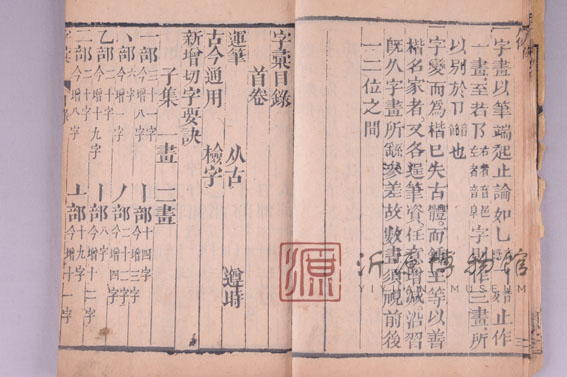 字畫以筆端起止論如止作
一畫至若乃右者音邑左者音阜字俱作三畫所
以別於卩音節也
一字變而為楷已失古體而鍾王等以善
楷名家者又各逞筆資任意增減沿習
既久字畫所繇參差故數畫須覗前後
一二位之間
字彙目錄
首卷
運筆 从古 遵時
古今通用 檢字
新增切字要訣
子集 一畫 二畫
一部 今增八字 丨部 十四字 今增三字
丶部 六字 丿部 今增四字
乙部 今增十九字 亅部 八字 今增十二字
二部 今增八字 亠部 十九字 今增十一字
源 沂源博物馆
YIYUAN MUSEUM